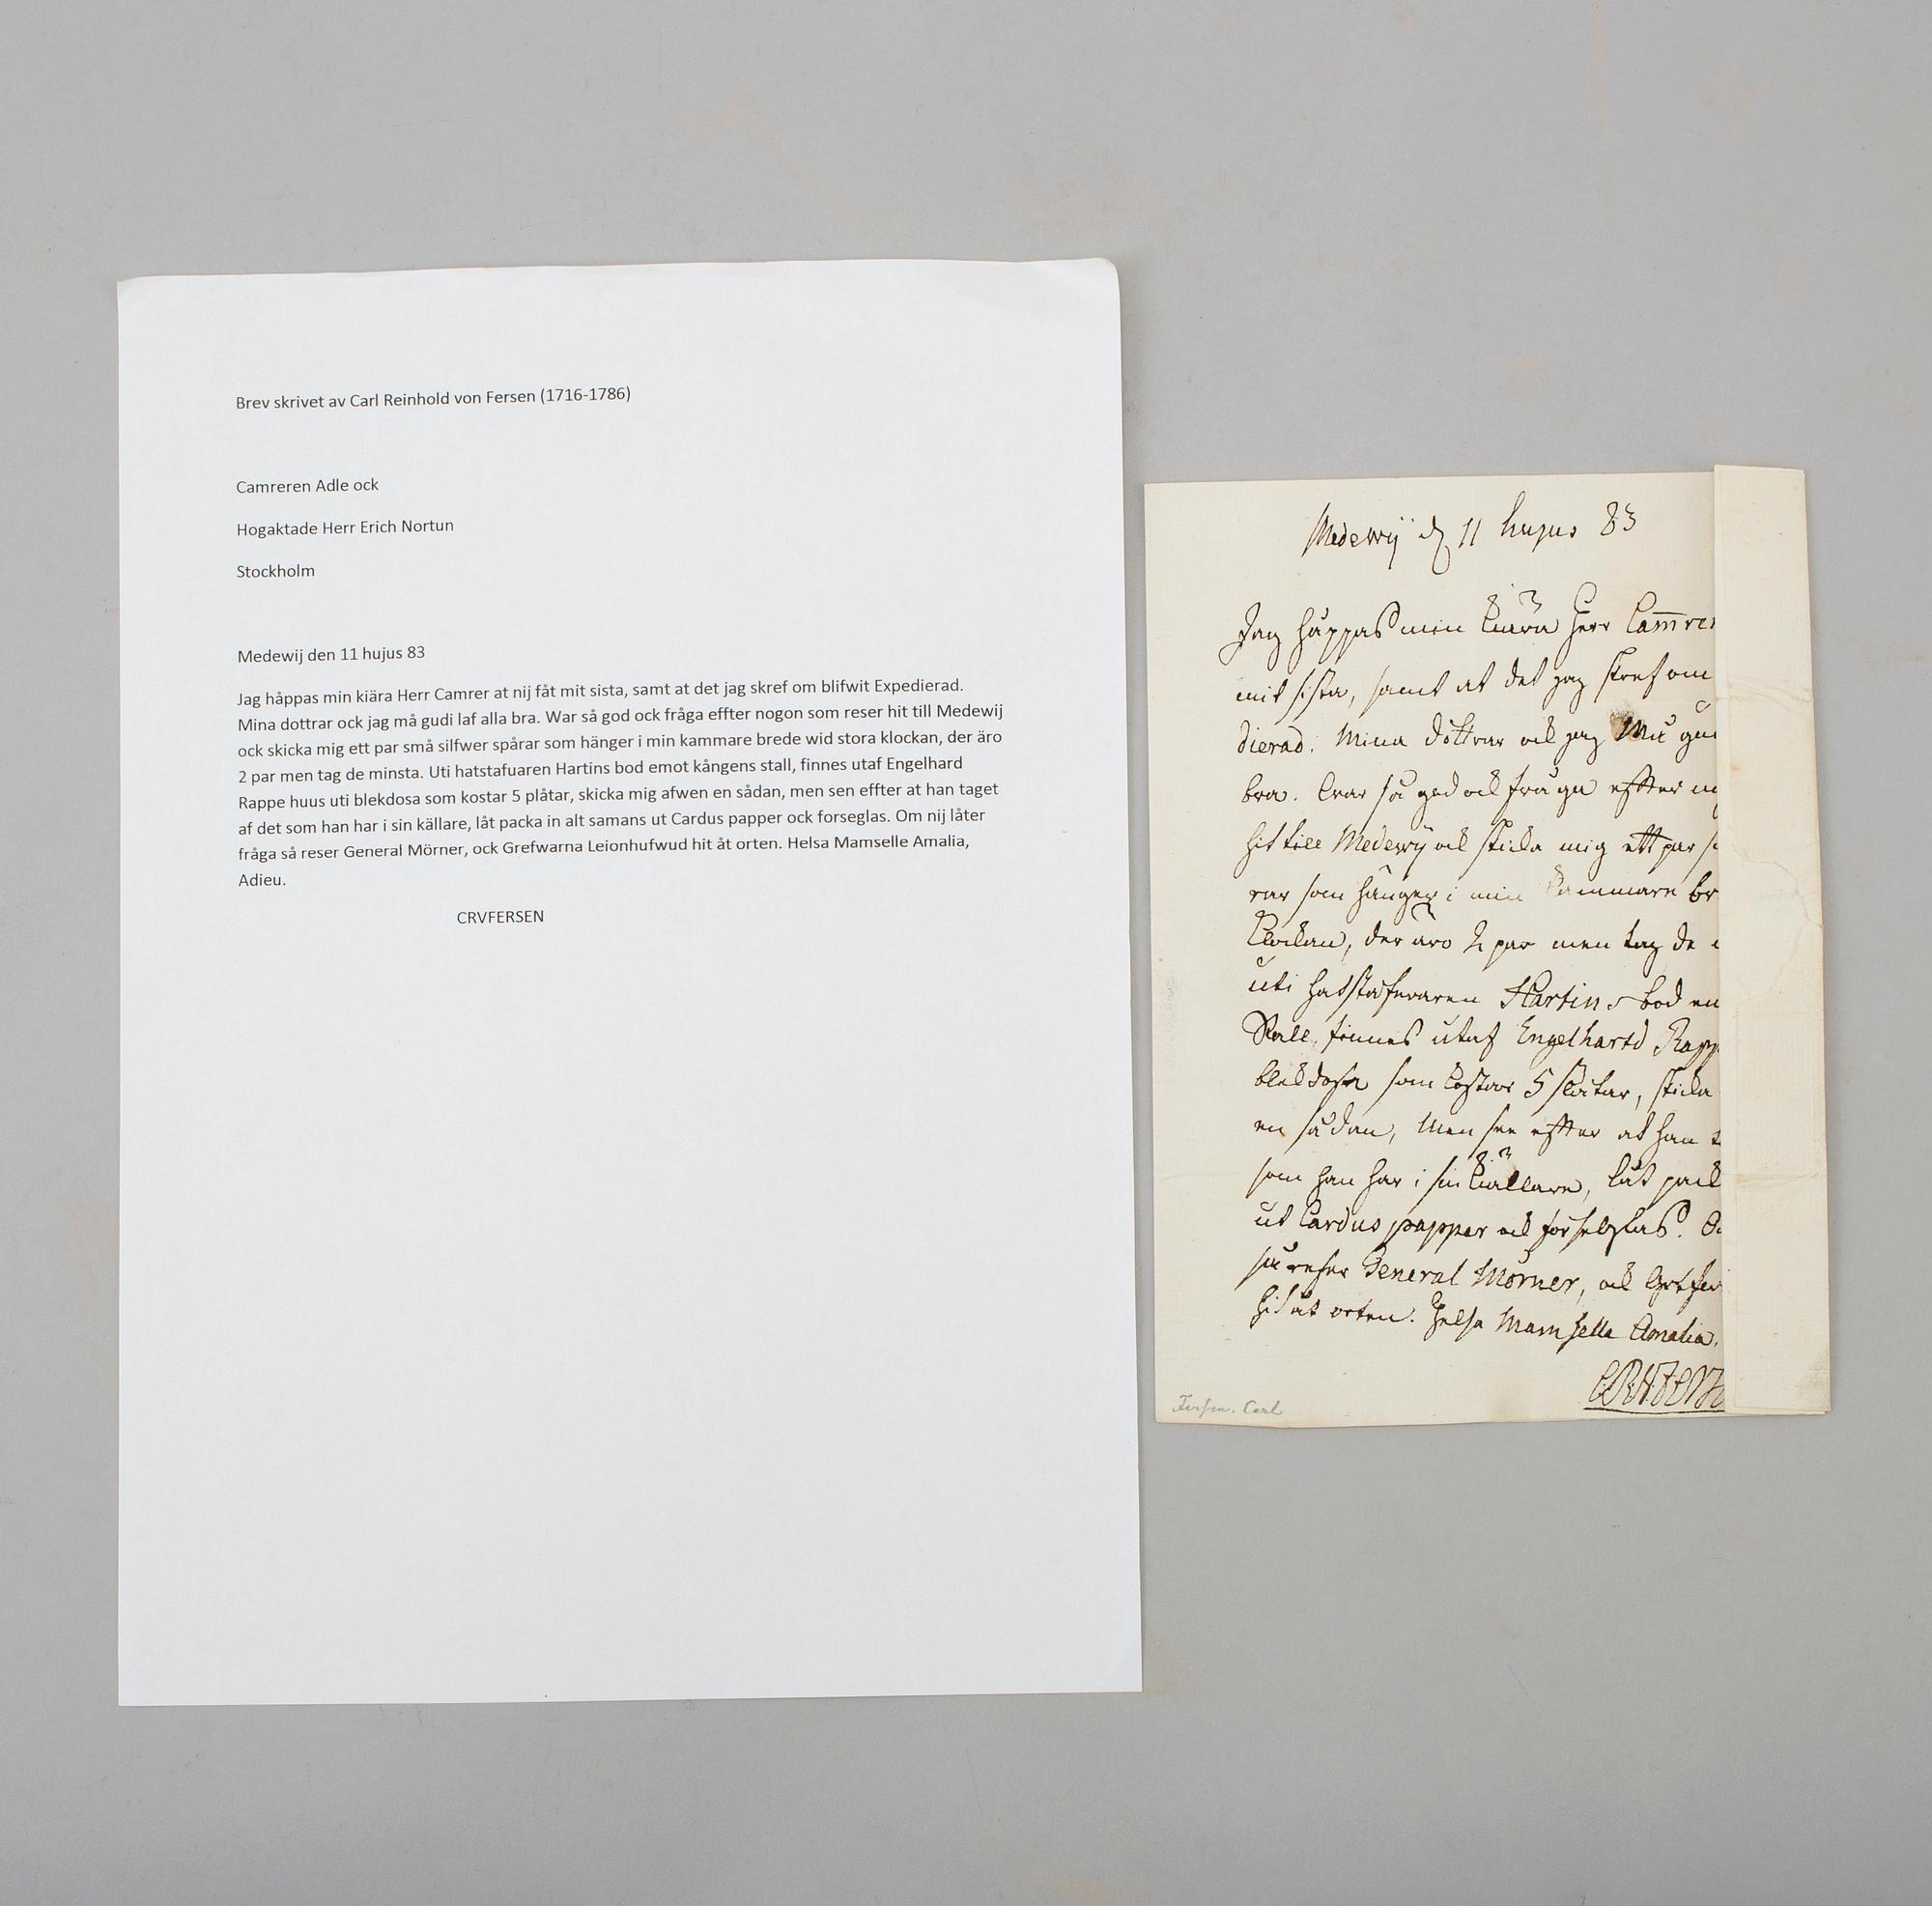 Brev skrivet av Carl Reinhold von Fersen (1716-1786)
Camreren Adle ock
Hogaktade Herr Erich Nortun
Stockholm
Medewij den 11 hujus 83
Jag håppas min kiära Herr Camrer at nij fåt mit sista, samt at det jag skref om blifwit Expedierad.
Mina dottrar ock jag må gudi laf alla bra. War så god ock fråga effter nogon som reser hit till Medewij
ock skicka mig ett par små silfwer spårar som hänger i min kammare brede wid stora klockan, der äro
2 par men tag de minsta. Uti hatstafuaren Hartins bod emot kångens stall, finnes utaf Engelhard
Rappe huus uti blekdosa som kostar 5 plåtar, skicka mig afwen en sådan, men sen effter at han taget
af det som han har i sin källare, låt packa in alt samans ut Cardus papper ock forseglas. Om nij låter
fråga så reser General Mörner, ock Grefwarna Leionhufwud hit åt orten. Helsa Mamselle Amalia,
Adieu.
CRVFERSEN
Medewij d 11 hujus 83
Jag håppas min kiära Herr Camrer
mit sista, samt at det jag skref om
dierad. Mina döttrar ock jag Må gud
bra. War så god ock fråga effter
hit till Medewij ock skicka mig ett par
rar som hänger i min kammare br
klockan, der äro 2 par men tag de
uti hatstafwaren Hartins bod em
stall, finnes utaf Engelhard Rapp
blekdosa som kostar 5 plåtar, skicka
en sådan, Men see effter at han
som han har i sin kiällare, låt pack
ut Cardus papper ock forseglas.
så reser General Mörner, ock Grefw
hit åt orten. Helsa Mamselle Amalia.
Fersen. Carl